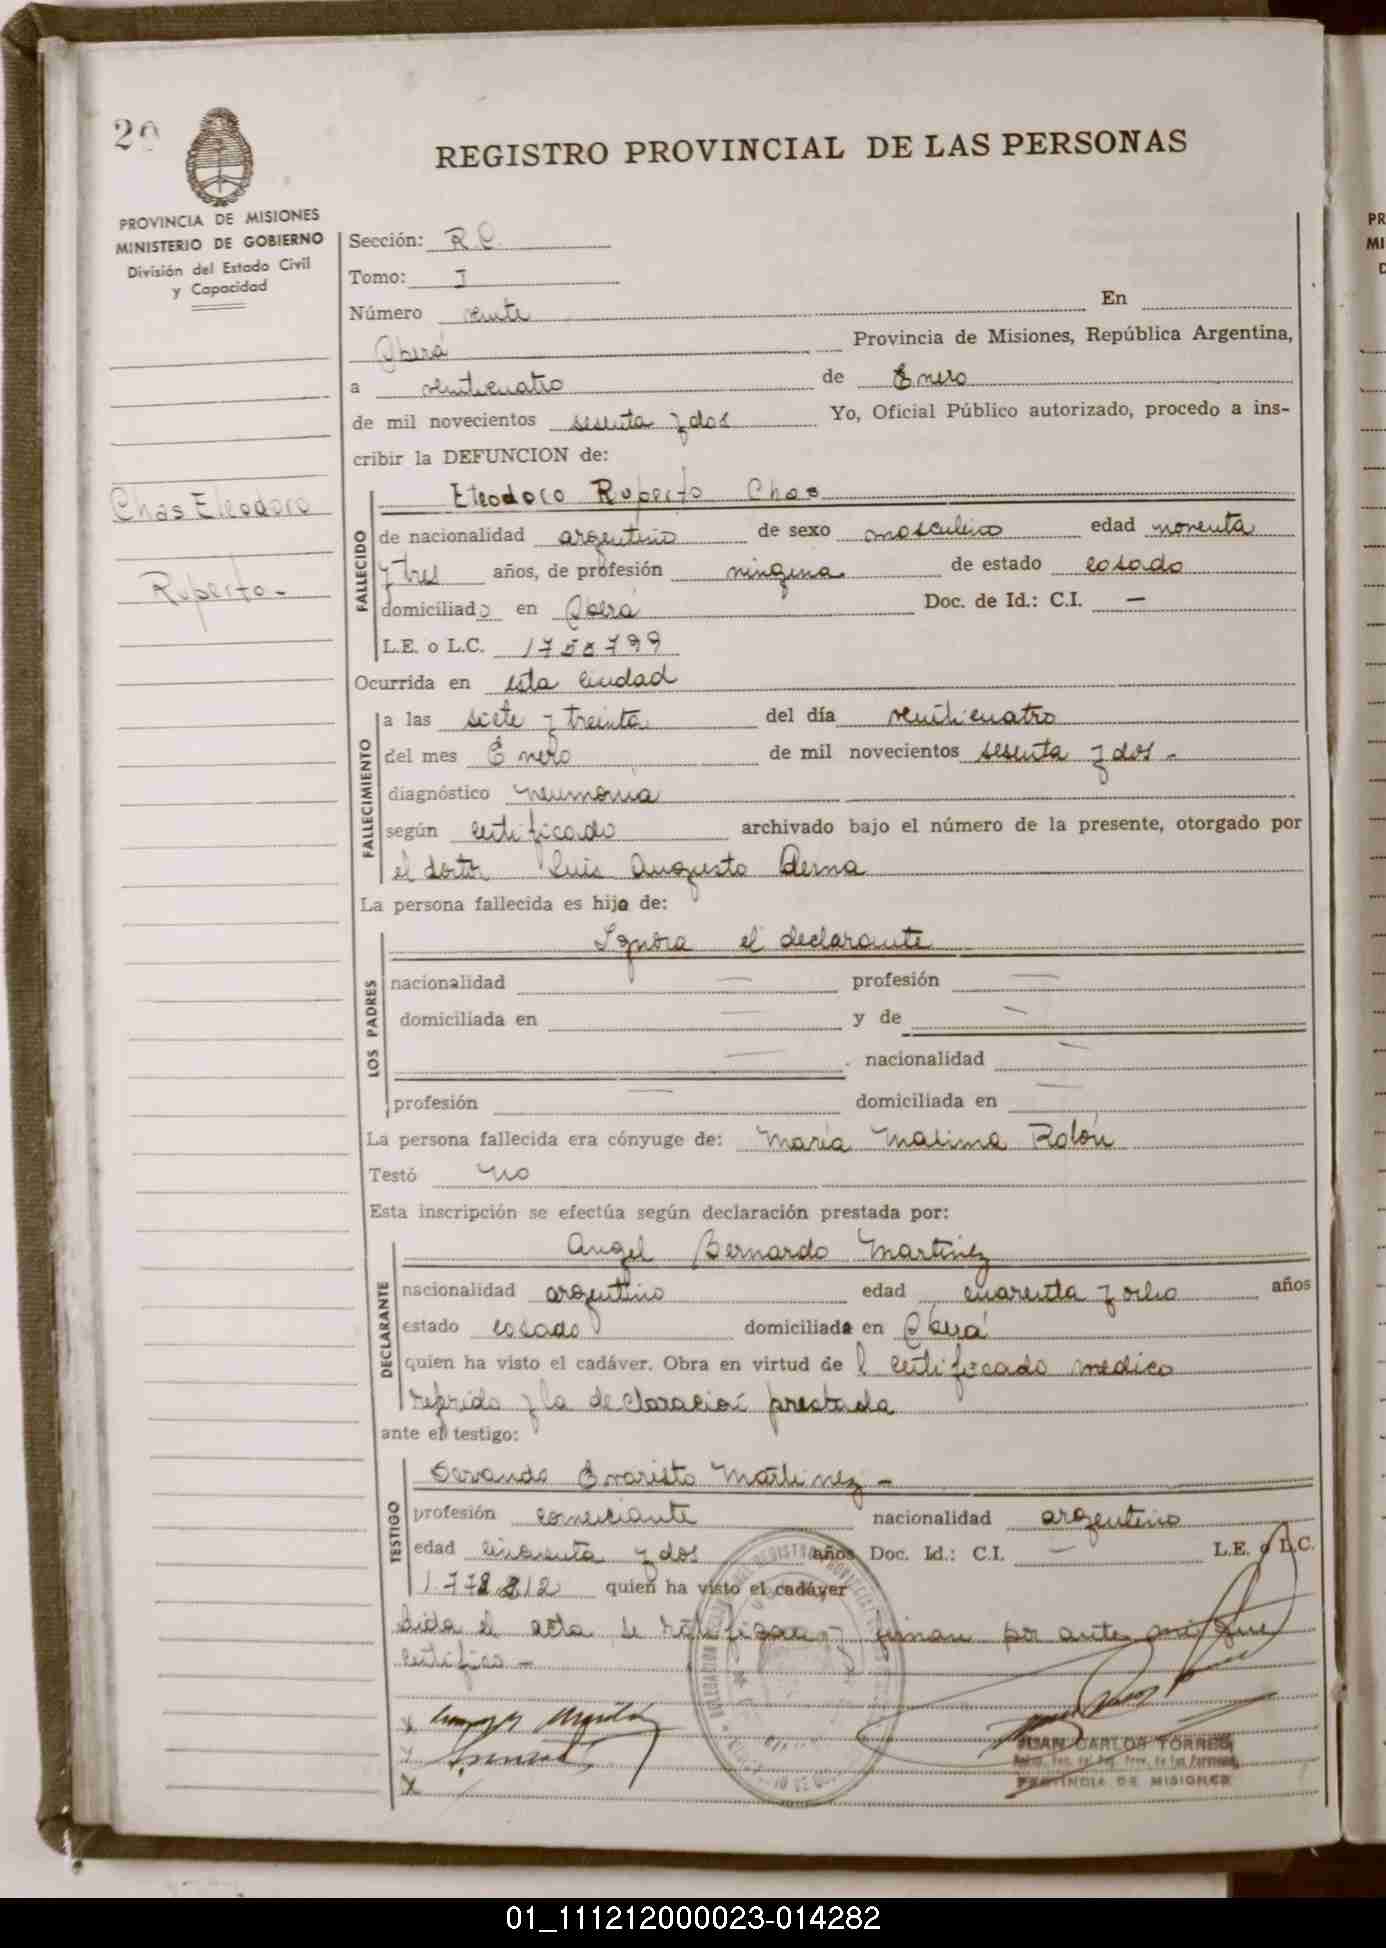 20
REGISTRO PROVINCIAL DE LAS PERSONAS
PROVINCIA DE MISIONES
MINISTERIO DE GOBIERNO
División del Estado Civil
y Capacidad
Sección: R.C.
Tomo: I
Número veinte En
Oberá Provincia de Misiones, República Argentina,
a veinticuatro de Enero
de mil novecientos sesenta y dos Yo, Oficial Público autorizado, procedo a ins-
cribir la DEFUNCION de:
Chas Eleodoro
Ruperto.-
FALLECIDO
Eleodoro Ruperto Chas
de nacionalidad argentino de sexo masculino edad noventa
y tres años, de profesión ninguna de estado casado
domiciliado en Oberá Doc. de Id.: C.I. —
L.E. o L.C.
Ocurrida en esta ciudad
FALLECIMIENTO
a las siete y treinta del día veinticuatro
del mes Enero de mil novecientos sesenta y dos.-
diagnóstico neumonia
según certificado archivado bajo el número de la presente, otorgado por
el doctor Luis Augusto Derna
La persona fallecida es hijo de:
LOS PADRES
Ignora el declarante
nacionalidad — profesión —
domiciliada en — y de —
— nacionalidad —
profesión — domiciliada en —
La persona fallecida era cónyuge de: María Malima Rolón
Testó no
Esta inscripción se efectúa según declaración prestada por:
DECLARANTE
Angel Bernardo Martinez
nacionalidad argentino edad cuarenta y ocho años
estado casado domiciliada en Oberá
quien ha visto el cadáver. Obra en virtud de l certificado medico
referido y la declaración prestada
ante el testigo:
TESTIGO
Servando Evaristo Martinez -
profesión comerciante nacionalidad argentino
edad cincuenta y dos años Doc. Id.: C.I. — L.E. o L.C.
quien ha visto el cadáver
Leida el acta se ratifican y firman por ante mi que
certifico -
JUAN CARLOS TORRES
PROVINCIA DE MISIONES
01_111212000023-014282